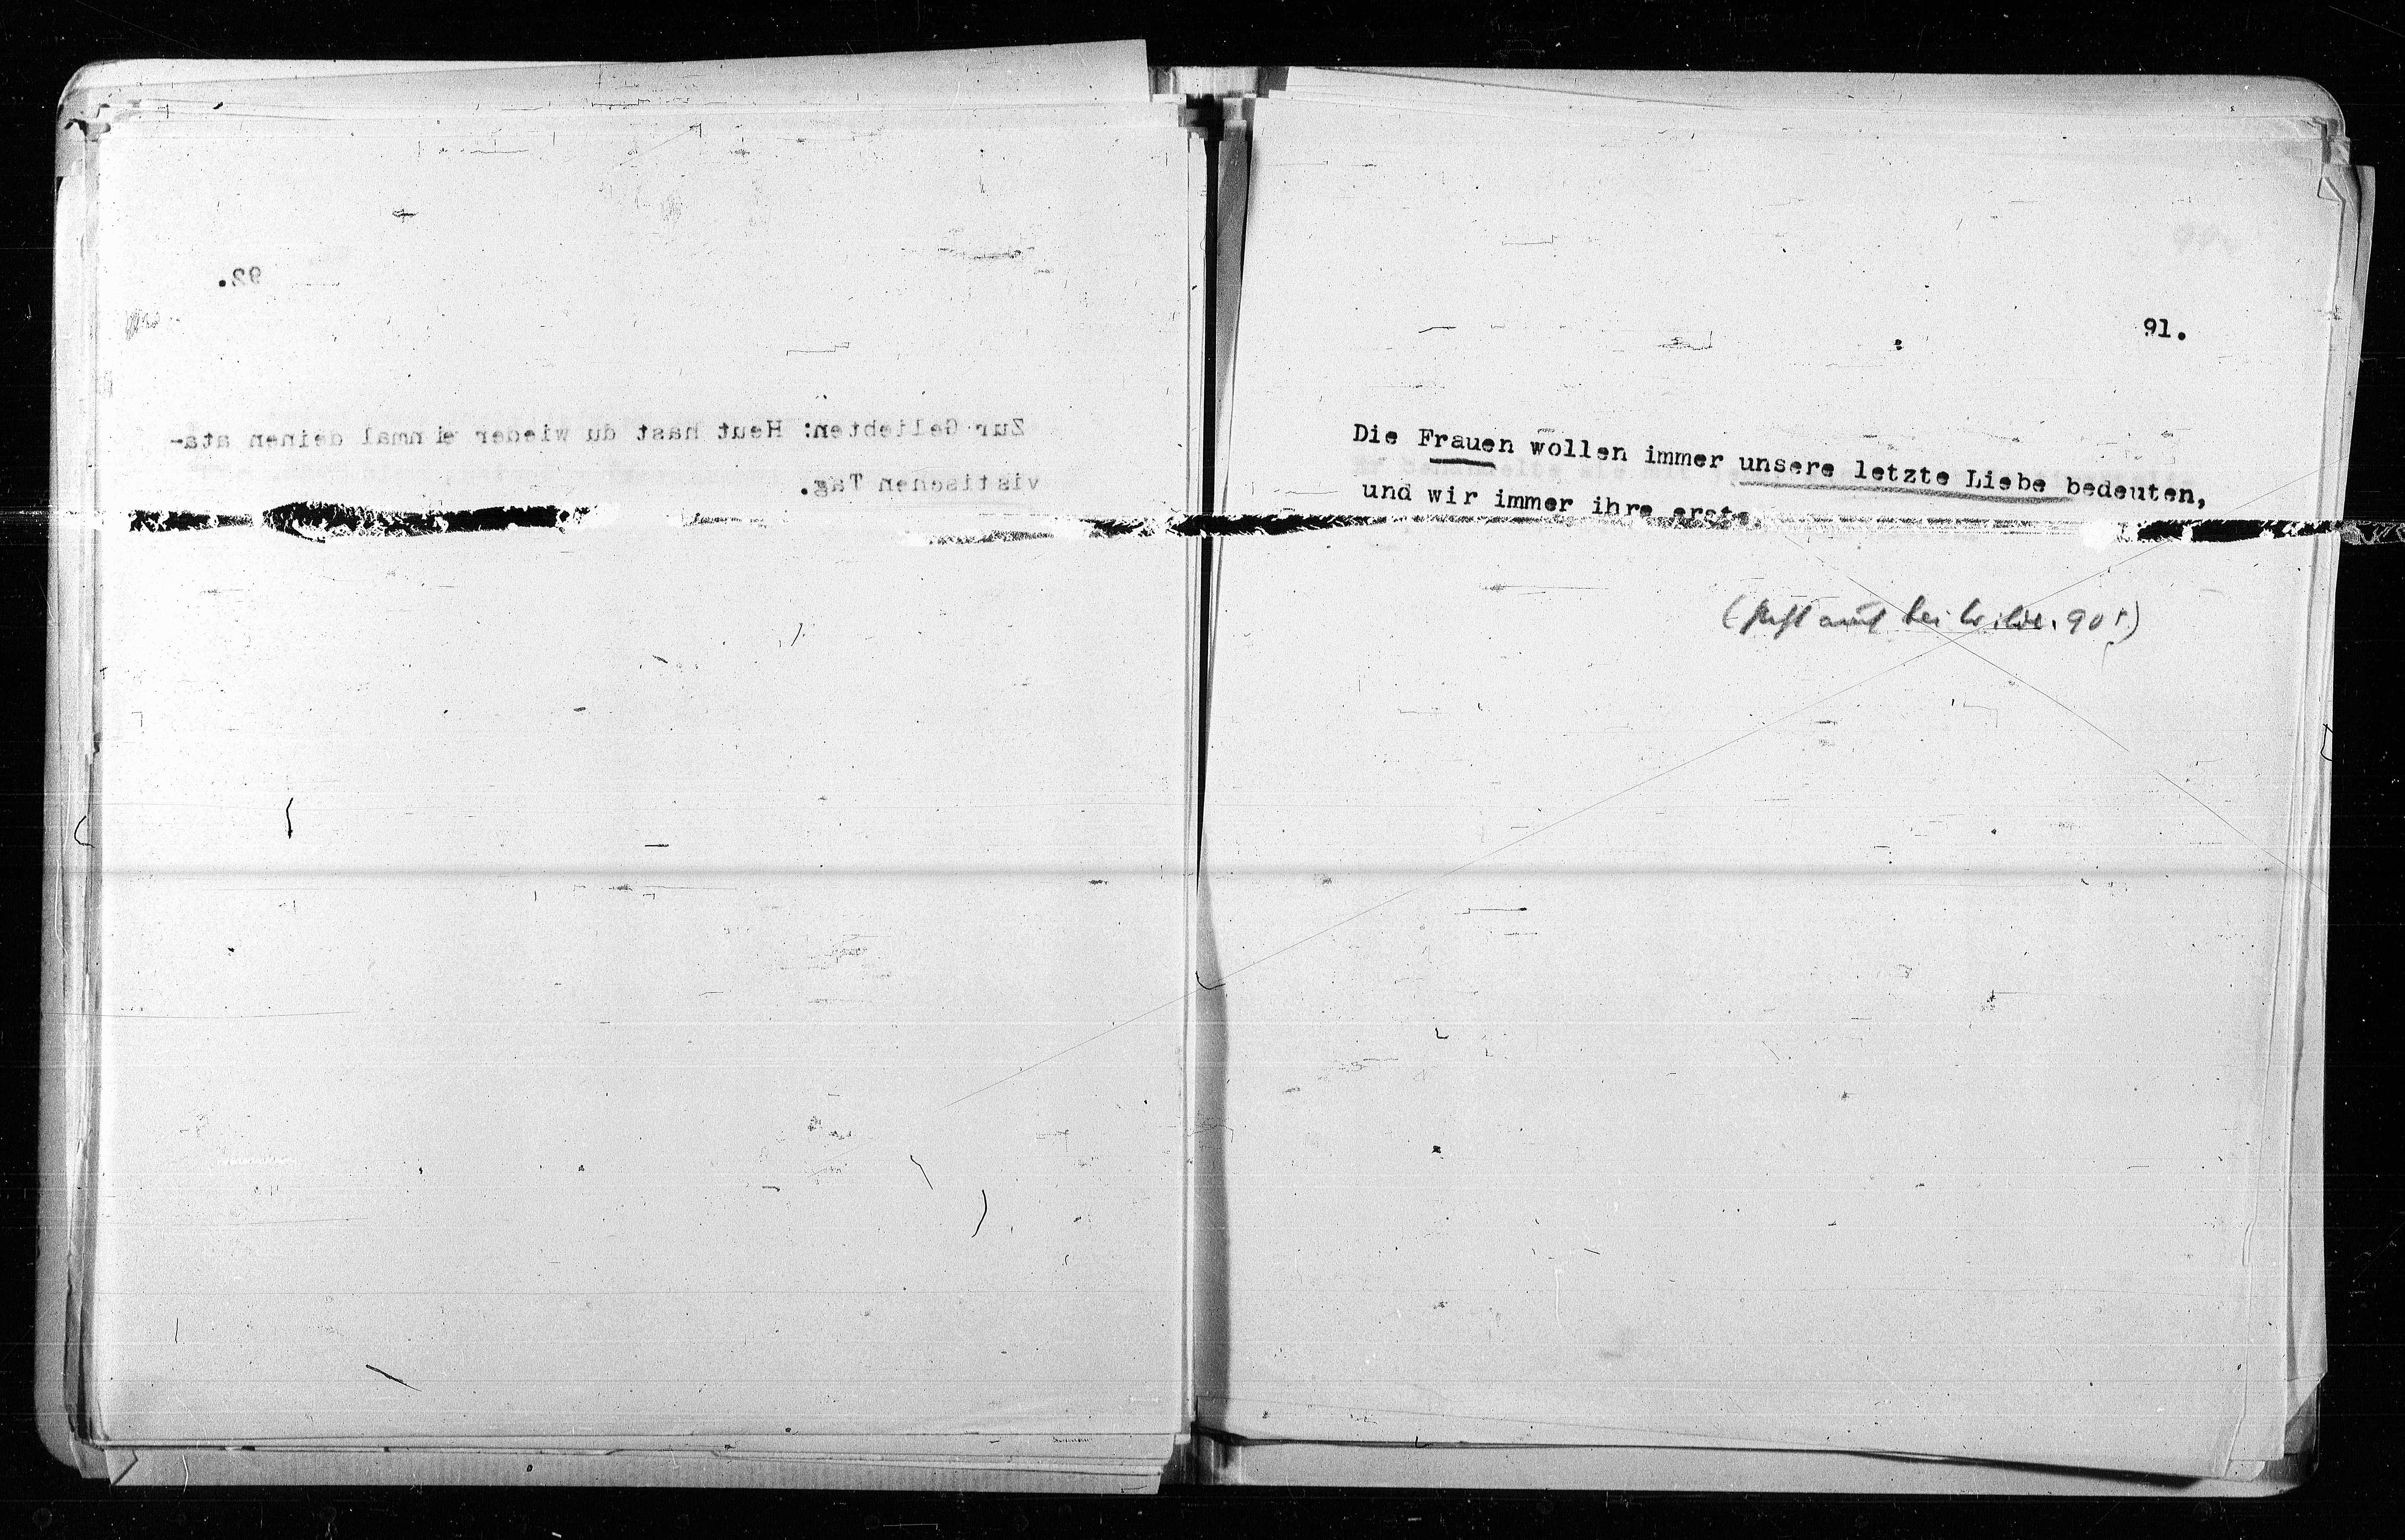 92.
Zur Geliebten: Heut hast du wieder einmal deinen ata-
vistischen Tag.
91.
Die Frauen wollen immer unsere letzte Liebe bedeuten,
und wir immer ihre erste.
(steht auch bei Wilde. 90!)